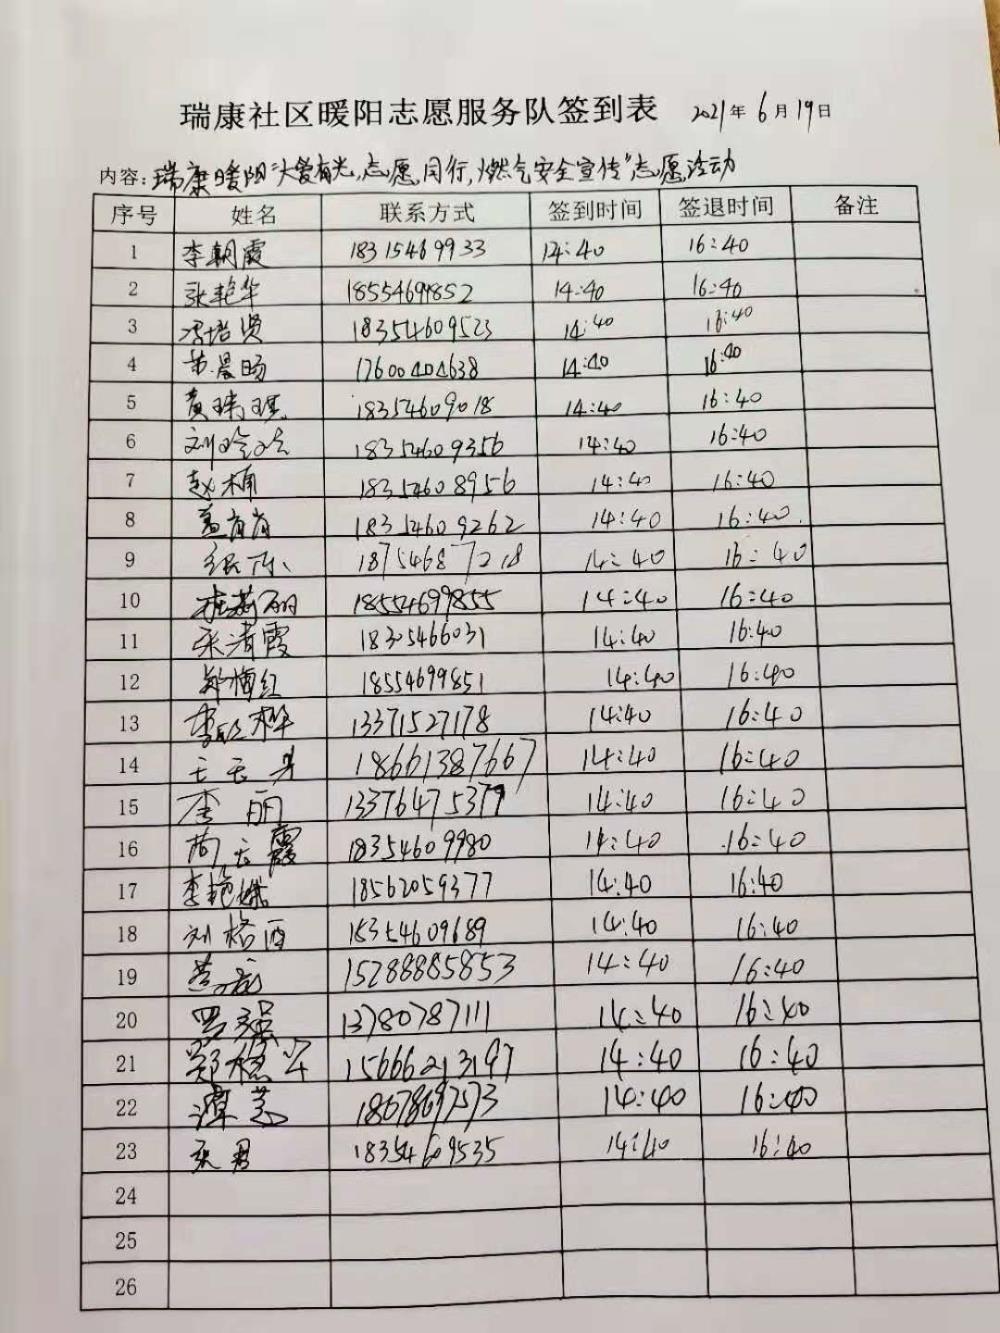 瑞康社区暖阳志愿服务队签到表 2021年6月19日
内容:瑞康暖阳"大爱有光,志愿同行,燃气安全宣传"志愿活动
序号 姓名 联系方式 签到时间 签退时间 备注
1 李朝霞 18315469933 14:40 16:40
2 张艳华 18554691852 14:40 16:40
3 冯培贤 18354609523 14:40 16:40
4 晨旸 17600404638 14:40 16:40
5 黄瑞瑾 18354609018 14:40 16:40
6 刘玲玲 18354609356 14:40 16:40
7 赵楠 18354608956 14:40 16:40
8 盖肖肖 18354609262 14:40 16:40
9 18754687218 14:40 16:40
10 18554699855 14:40 16:40
11 张清霞 18305466031 14:40 16:40
12 郑梅红 18554699851 14:40 16:40
13 李 13371527178 14:40 16:40
14 王 18661387667 14:40 16:40
15 李丽 13376475379 14:40 16:40
16 云霞 18354609980 14:40 16:40
17 李艳姝 18562059377 14:40 16:40
18 刘格酉 18354609689 14:40 16:40
19 15288885853 14:40 16:40
20 罗强 13780787111 14:40 16:40
21 郑 15666213197 14:40 16:40
22 谭 18678697573 14:40 16:40
23 张君 18354609535 14:40 16:40
24
25
26